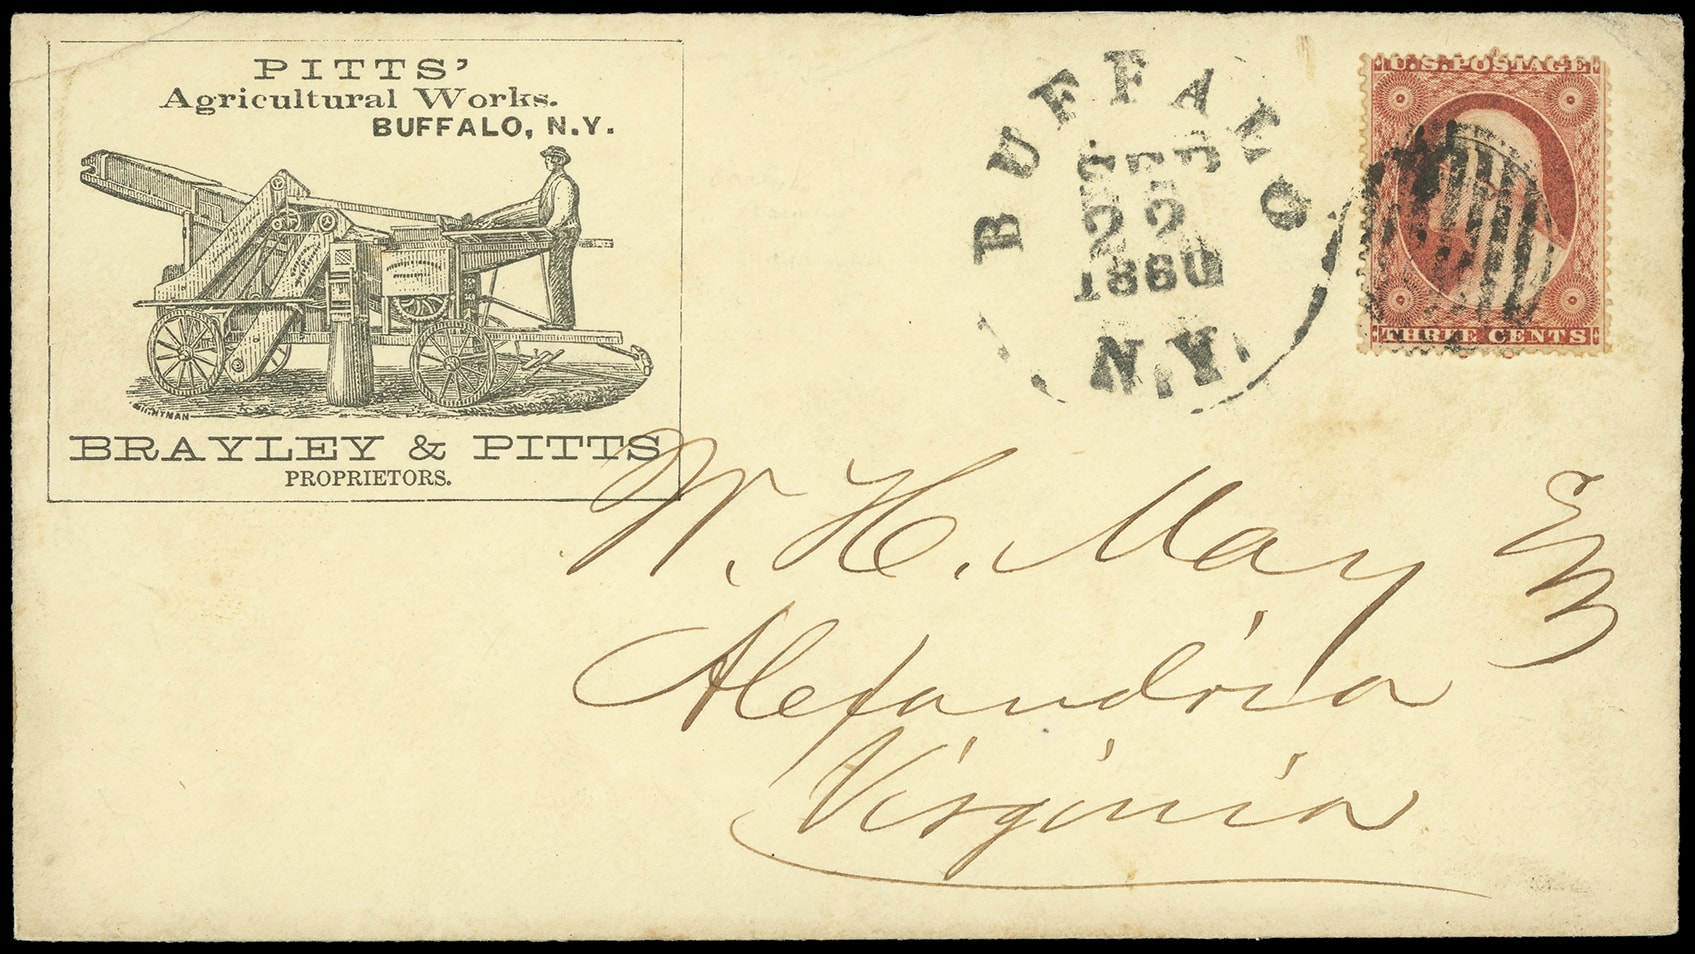 PITTS'
Agricultural Works.
BUFFALO, N.Y.
BRAYLEY & PITTS
PROPRIETORS.
BUFFALO
22
1860
N.Y.
U.S. POSTAGE
THREE CENTS
W. H. May Esq
Alexandria
Virginia